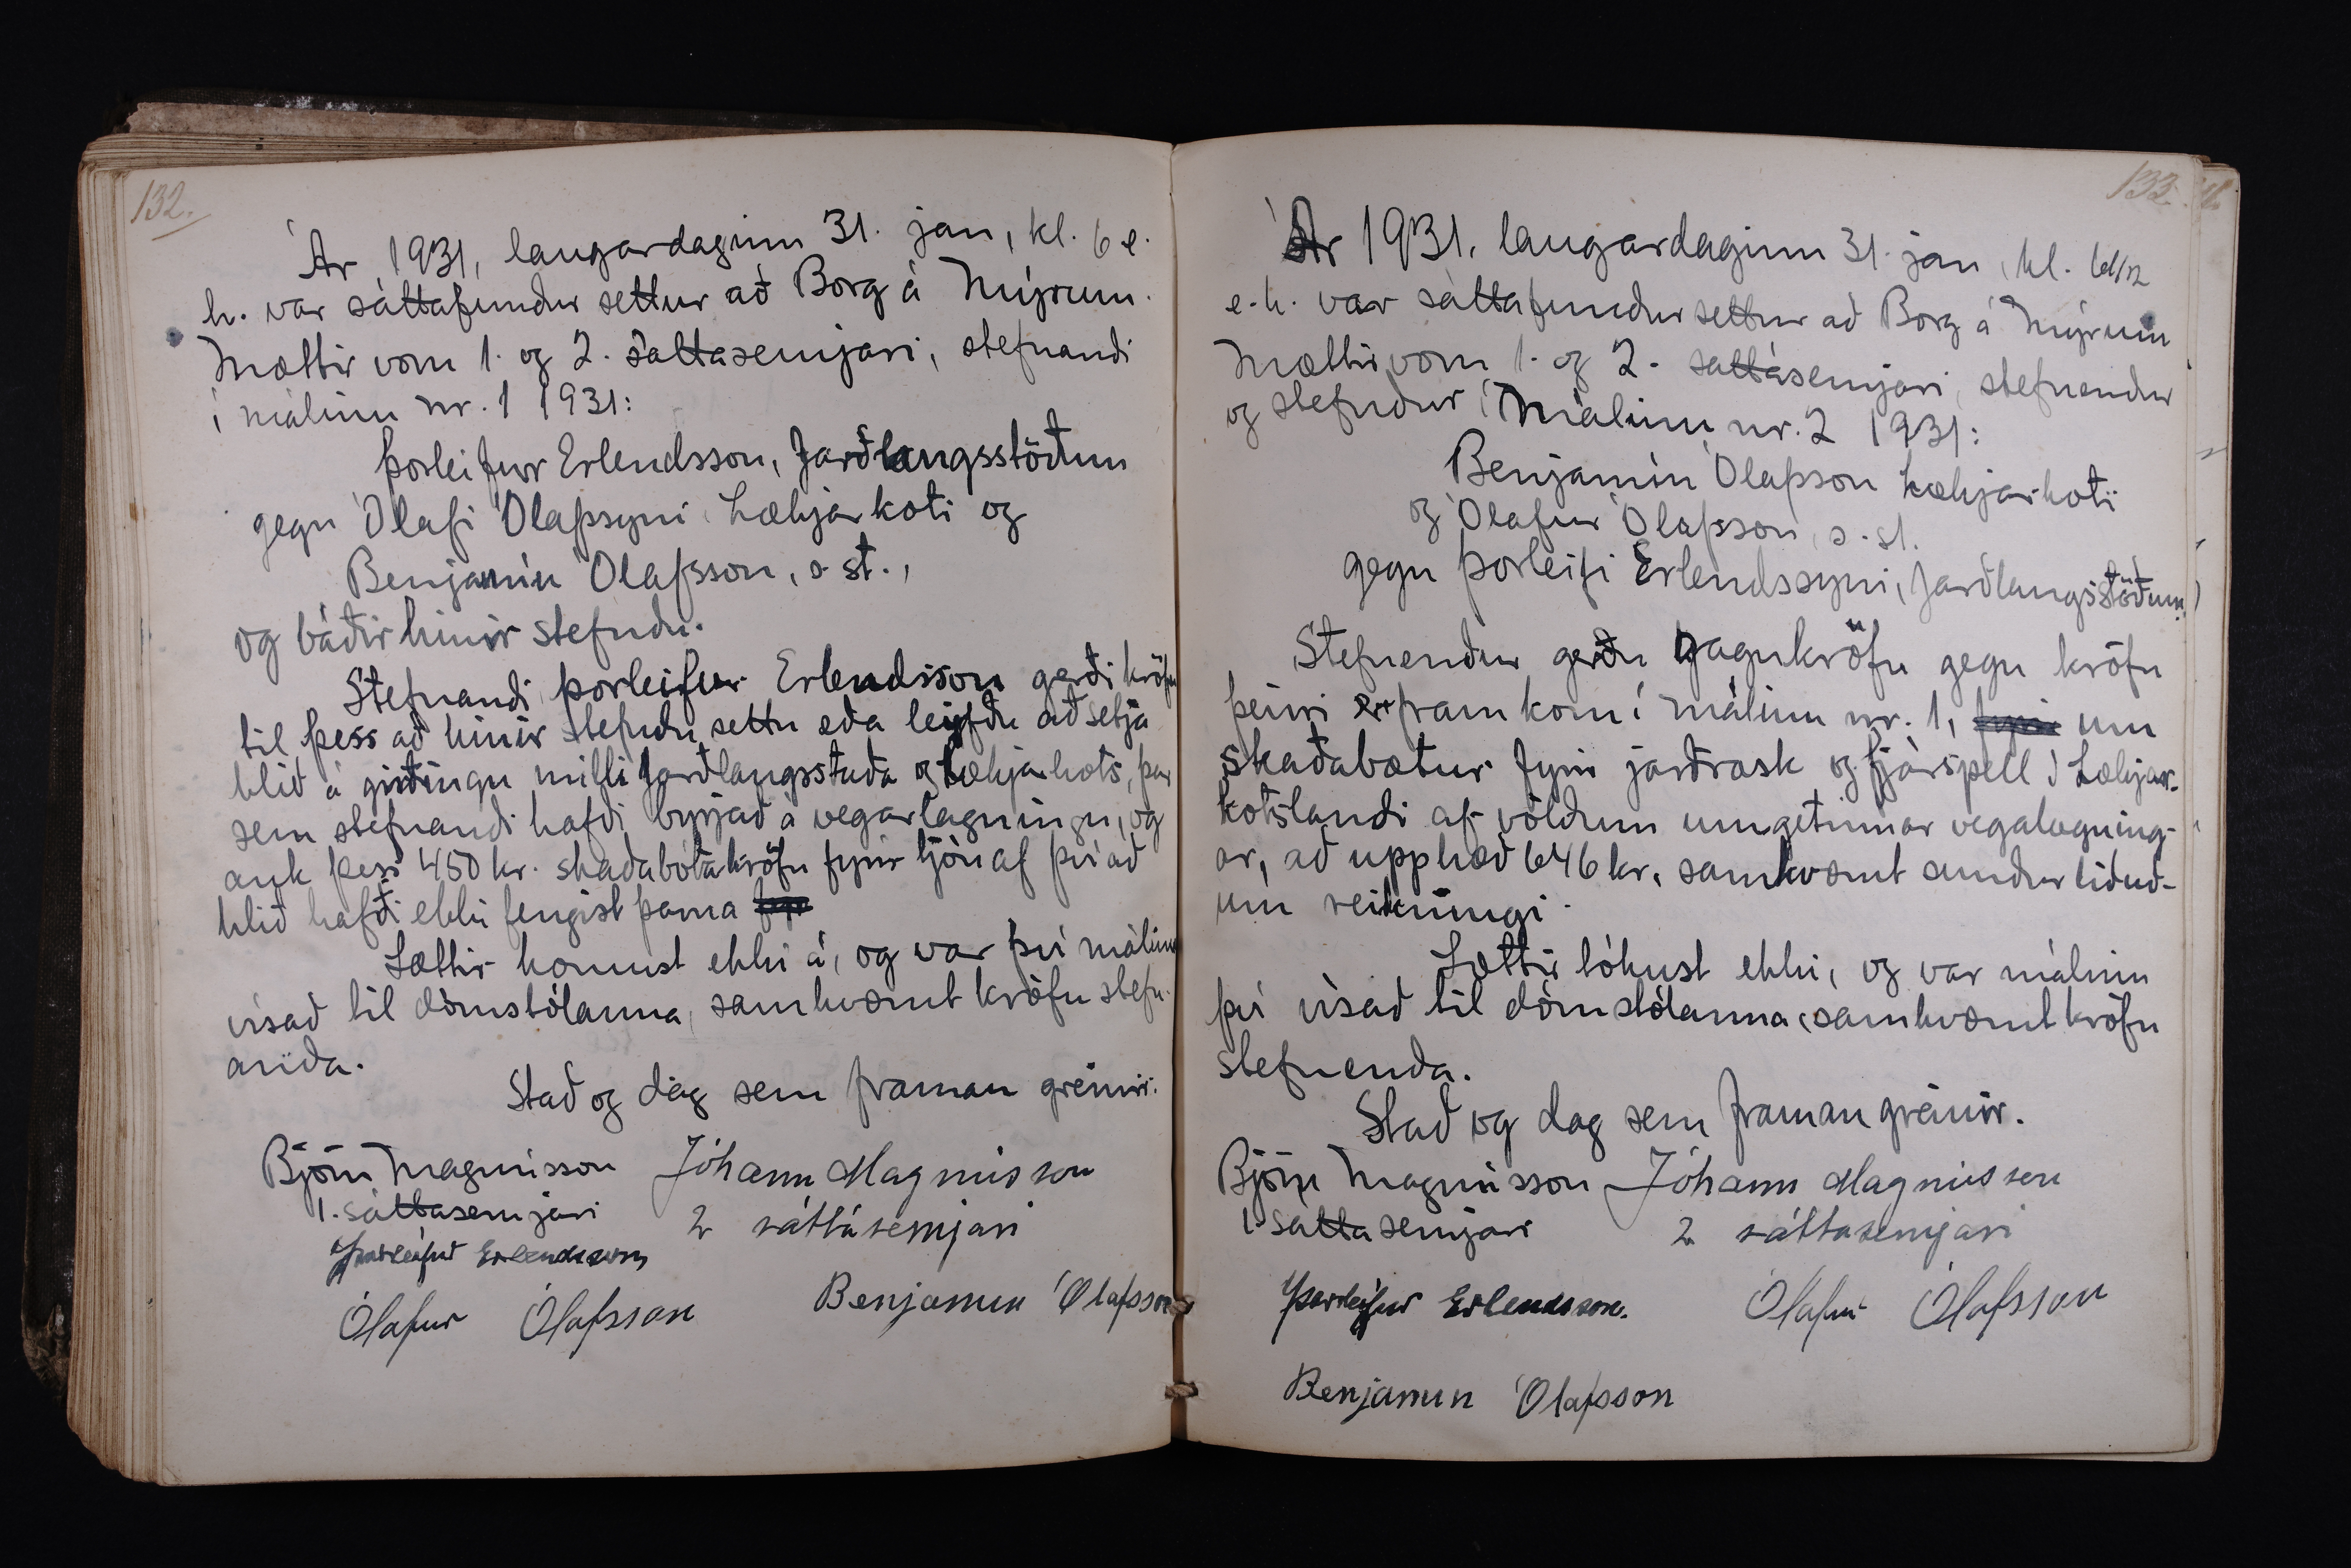 132.
Ár 1931, laugardaginn 31. jan, kl. 6 e.
h. var sáttafundur settur að Borg á Mýrum.
Mættir vom 1. og 2. sáttasemjari, stefnandi
í málinu nr. 1 1931:
Þorleifur Erlendsson, Jarðlangsstöðum
gegn Ólafi Ólafssyni, Lækjarkoti og
Benjamín Ólafsson, s. st.,
og báðir hinir stefndu.
Stefnandi Þorleifur Erlendsson gerði kröfu
til þess að hinir stefndu settu eða leyfðu að setja
hlið á girðingu milli Jarðlangsstaða og Lækjarkots, þar
sem stefnandi hafði byrjað á vegarlagningu, og
auk þess 450 kr. skaðabótakröfu fyrir tjón af því að
hlið hafði ekki fengist þarna
Sættir komust ekki á, og var því málinu
vísað til dómstólanna, samkvæmt kröfu stefn-
anda.
Stað og dag sem framan greinir.
Björn Magnússon Jóhann Magnússon
1. sáttasemjari 2 sáttasemjari
Þorleifur Erlendsson
Ólafur Ólafsson Benjamín Ólafsson
133.
Ár 1931, laugardaginn 31. jan, kl. 6 1/2
e.h. var sáttafundur settur að Borg á Mýrum
Mættir vom 1. og 2. sáttasemjari, stefnendur
og stefndur í málinu nr. 2 1931:
Benjamín Ólafsson Lækjarkoti
og Ólafur Ólafsson, s. st.
gegn Þorleifi Erlendssyni, Jarðlangsstöðum.
Stefnendur gerðu gagnkröfu gegn kröfu
þeirri er fram kom í málinu nr. 1, um
skaðabætur fyrir jarðrask og fjárspell í Lækjar-
kotslandi af völdum umgetinnar vegalagning-
ar, að upphæð 646 kr. samkvæmt sundurliðuð-
um reikningi.
Sættir tókust ekki, og var málinu
því vísað til dómstólanna, samkvæmt kröfu
stefnenda.
Stað og dag sem framan greinir.
Björn Magnússon Jóhann Magnússon
1. sáttasemjari 2 sáttasemjari
Þorleifur Erlendsson. Ólafur Ólafsson
Benjamín Ólafsson